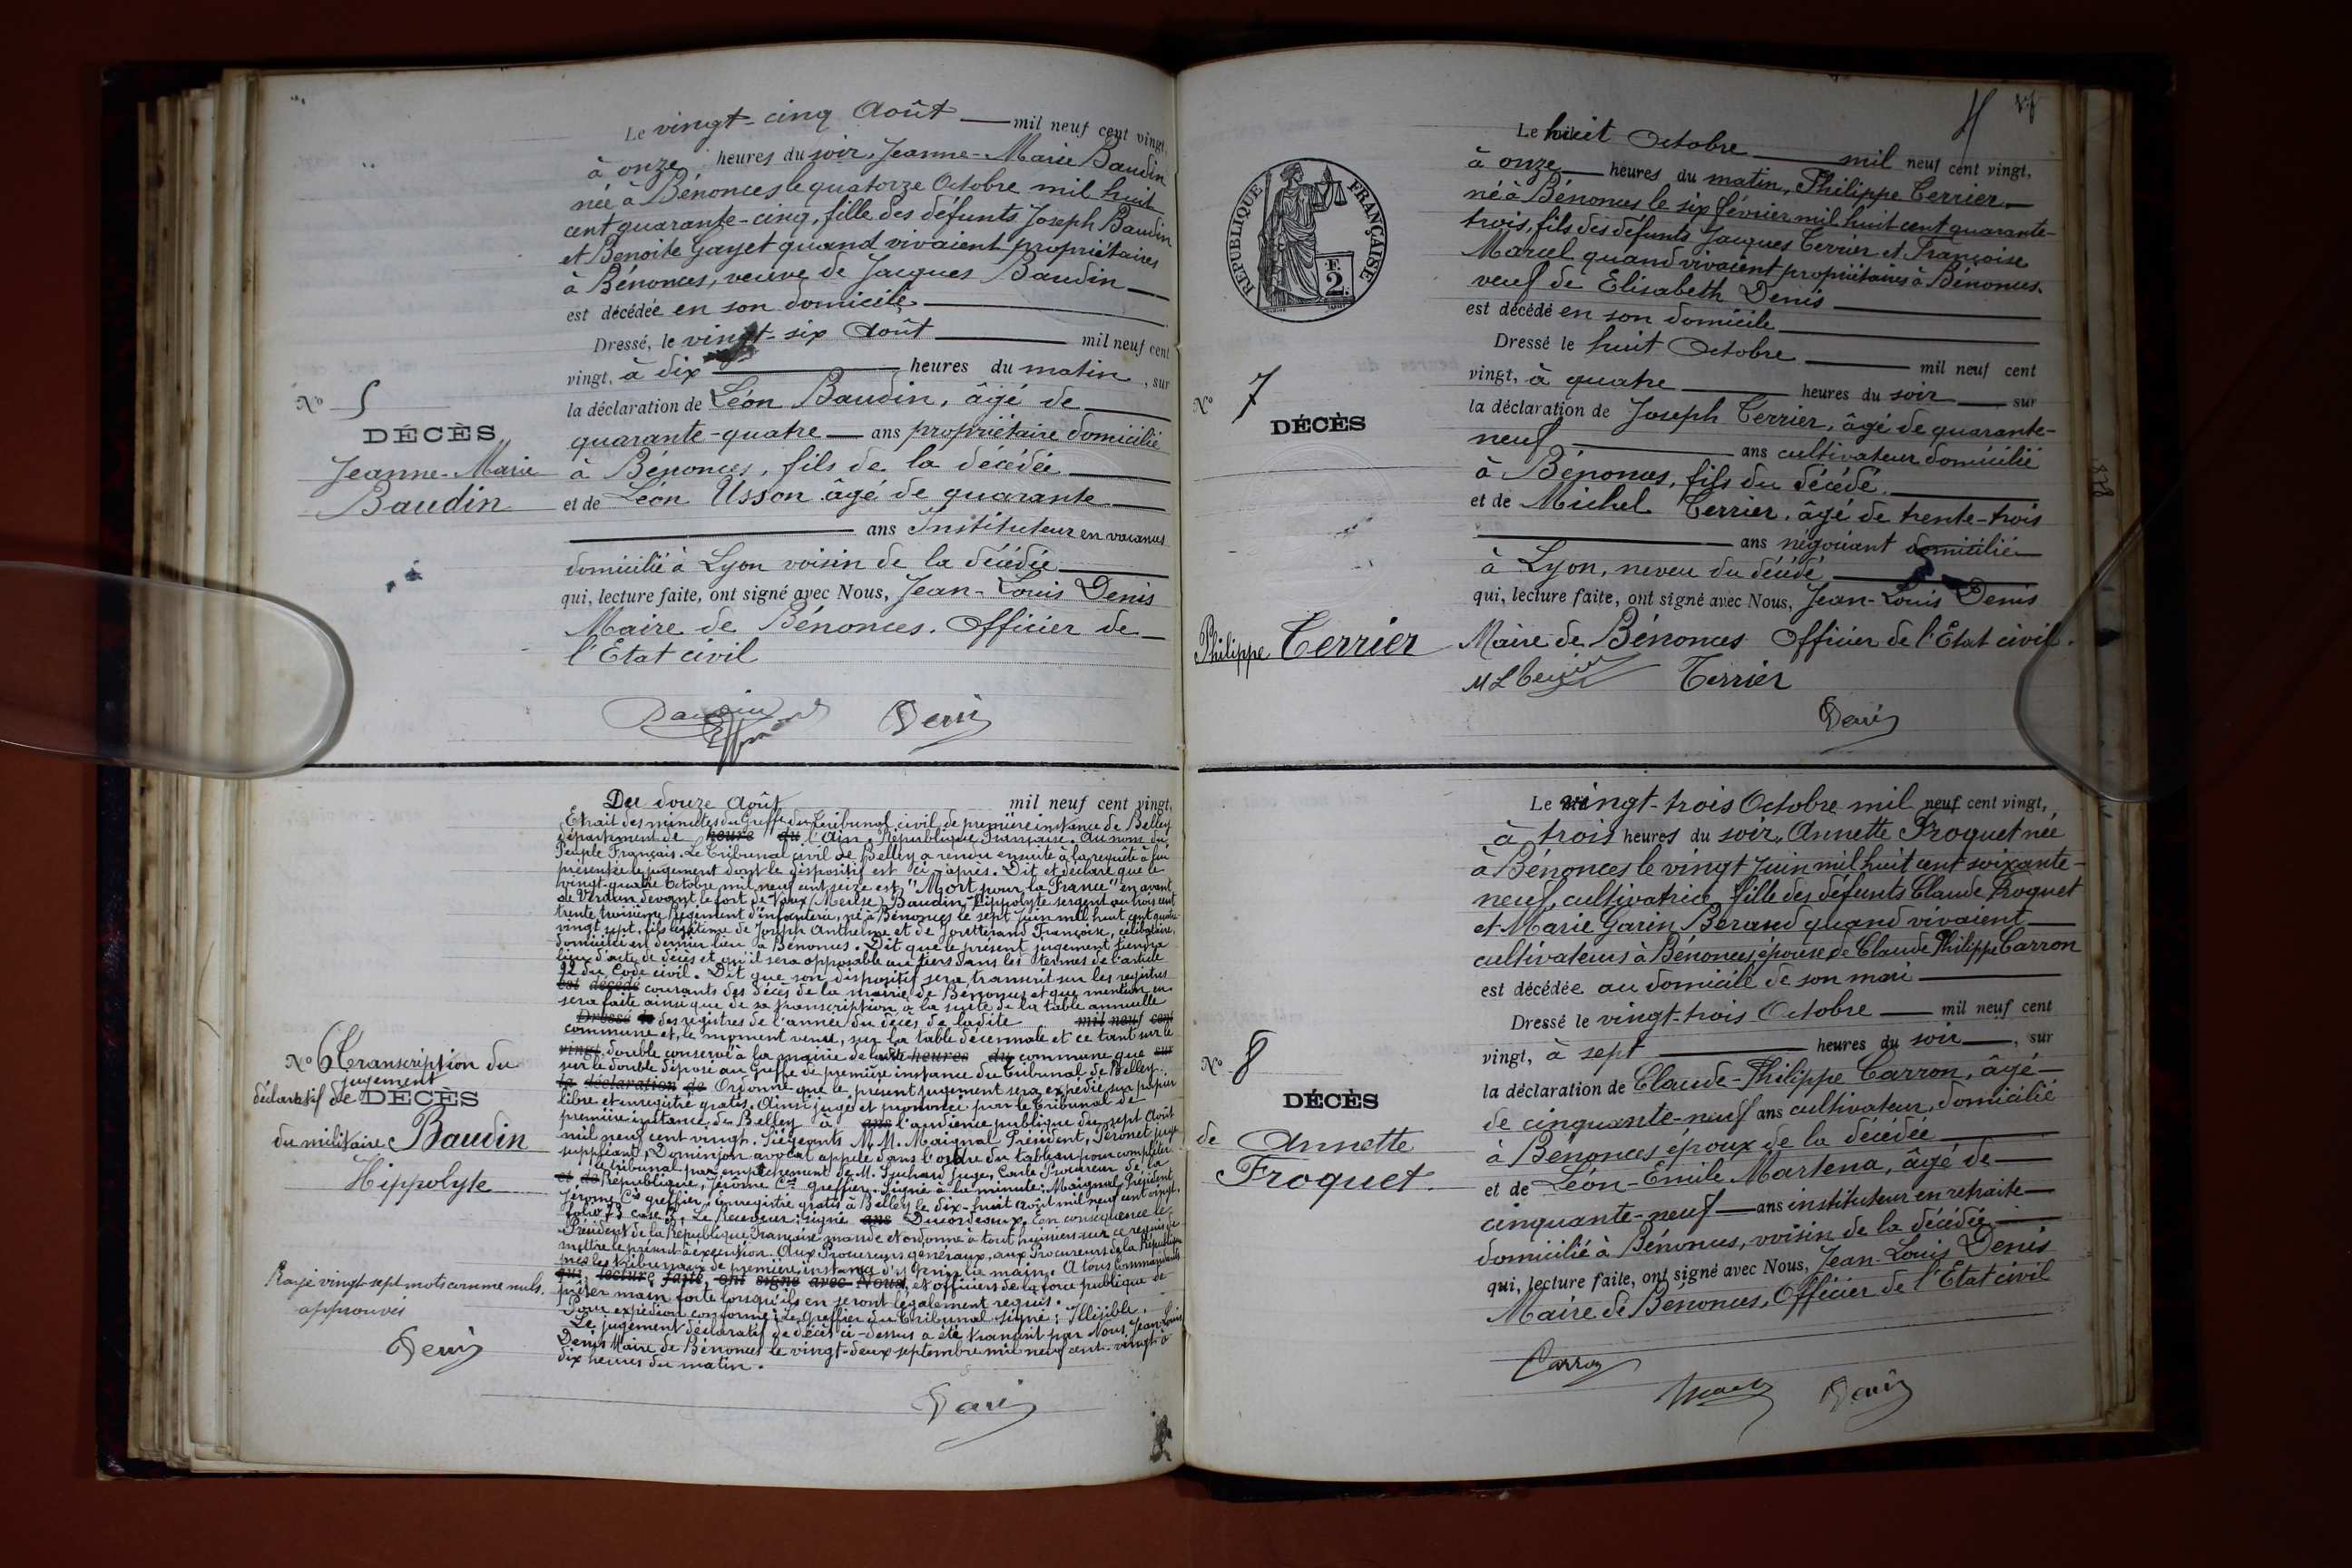 Le vingt-cinq Août — mil neuf cent vingt,
à onze heures du soir, Jeanne-Marie Baudin
née à Bénonces le quatorze Octobre mil huit
cent quarante-cinq, fille des défunts Joseph Baudin
et Benoite Gayet quand vivaient propriétaires
à Bénonces, veuve de Jacques Baudin —
est décédée en son domicile —
Dressé, le vingt-six Août — mil neuf cent
vingt, à dix — heures du matin, sur
la déclaration de Léon Baudin, âgé de —
quarante-quatre — ans propriétaire domicilié
à Bénonces, fils de la décédée —
et de Léon Usson âgé de quarante —
— ans Instituteur en vacances
domicilié à Lyon voisin de la décédée —
qui, lecture faite, ont signé avec Nous, Jean-Louis Denis
Maire de Bénonces. Officier de —
l'Etat civil
N° 5
DÉCÈS
Jeanne-Marie
Baudin
Baudin Denis
Du douze Août mil neuf cent vingt,
Extrait des minutes du Greffe du Tribunal civil de première instance de Belley
département de heure du l'Ain République Française. Au nom du
Peuple Français. Le Tribunal civil de Belley a rendu ensuite à la requête à lui
présentée le jugement dont le dispositif est ci-après. Dit et déclare que le
vingt-quatre Octobre mil neuf cent seize est "Mort pour la France" en avant
de Verdun devant le fort de Vaux (Meuse) Baudin Hippolyte sergent au trois cent
trente troisième Régiment d'infanterie, né à Bénonces le sept Juin mil huit cent quatre
vingt sept, fils légitime de Joseph Anthelme et de Françoise, célibataire,
domicilié en dernier lieu à Bénonces. Dit que le présent jugement tiendra
lieu d'acte de décès et qu'il sera opposable aux tiers dans les termes de l'article
92 du Code civil. Dit que son dispositif sera transcrit sur les registres
est décédé courants des décès de la mairie de Bénonces et que mention en
sera faite ainsi que de sa transcription à la suite de la table annuelle
Dressé le des registres de l'année du décès de ladite mil neuf cent
commune et, le moment venu, sur la table décennale et ce tant sur le
vingt, double conservé à la mairie de ladite heures du commune que sur
sur le double déposé au Greffe de première instance du Tribunal de Belley.
la déclaration de Ordonne que le présent jugement sera expédié sur papier
libre et enregistré gratis. Ainsi jugé et prononcé par le Tribunal de
première instance de Belley à ans l'audience publique du sept Août
mil neuf cent vingt. Siégeants M.M. Maignal Président, Peronet juge
suppléant, Dominjon avocat appelé dans l'ordre du tableau pour compléter
le tribunal par empêchement de M. Guichard juge, Carle Procureur de la
et de République, Jérôme Cis greffier. Signé à la minute: Maignal Président
Jérome Cis greffier. Enregistré gratis à Belley le dix-huit Août mil neuf cent vingt,
folio 73 case 3, Le Receveur: signé ans Ducordeaux. En conséquence le
Président de la République Française mande et ordonne à tout huissier sur ce requis de
mettre le présent à exécution. Aux Procureurs généraux, aux Procureurs de la République
près les tribunaux de première instance d'y tenir la main. A tous Commandants
qui, lecture faite, ont signé avec Nous, et officiers de la force publique de
prêter main forte lorsqu'ils en seront légalement requis.
Pour expédition conforme: Le Greffier du Tribunal signé: Illisible.
Le jugement déclaratif de décès ci-dessus a été transcrit par Nous, Jean-Louis
Denis Maire de Bénonces le vingt-deux septembre mil neuf cent-vingt à
dix heures du matin.
N° 6 Transcription du
jugement
déclaratif de DÉCÈS
du militaire Baudin
Hippolyte
Rayé vingt-sept mots comme nuls.
approuvés
Denis
Denis
Le huit Octobre — mil neuf cent vingt,
à onze — heures du matin, Philippe Terrier —
né à Bénonces le six février mil huit cent quarante-
trois, fils des défunts Jacques Terrier et Françoise
Marcel quand vivaient propriétaires à Bénonces.
veuf de Elisabeth Denis —
est décédé en son domicile —
Dressé le huit Octobre — mil neuf cent
vingt, à quatre — heures du soir — sur
la déclaration de Joseph Terrier, âgé de quarante-
neuf — ans cultivateur domicilié
à Bénonces, fils du décédé. —
et de Michel Terrier, âgé de trente-trois
— ans négociant domicilié
à Lyon, neveu du décédé —
qui, lecture faite, ont signé avec Nous, Jean-Louis Denis
Maire de Bénonces Officier de l'Etat civil.
RÉPUBLIQUE FRANÇAISE
2 F.
N° 7
DÉCÈS
Philippe Terrier
Terrier
Denis
Le vingt-trois Octobre mil neuf cent vingt,
à trois heures du soir, Annette Froquet née
à Bénonces le vingt Juin mil huit cent soixante-
neuf, cultivatrice, fille des défunts Claude Froquet
et Marie Garin Beraud quand vivaient —
cultivateurs à Bénonces, épouse de Claude Philippe Carron
est décédée au domicile de son mari —
Dressé le vingt-trois Octobre — mil neuf cent
vingt, à sept — heures du soir —, sur
la déclaration de Claude-Philippe Carron, âgé —
de cinquante-neuf ans cultivateur, domicilié
à Bénonces époux de la décédée —
et de Léon-Emile Martena, âgé de —
cinquante-neuf — ans instituteur en retraite —
domicilié à Bénonces, voisin de la décédée —
qui, lecture faite, ont signé avec Nous, Jean-Louis Denis
Maire de Bénonces, Officier de l'Etat civil
N° 8
DÉCÈS
de Annette
Froquet.
Carron
Denis